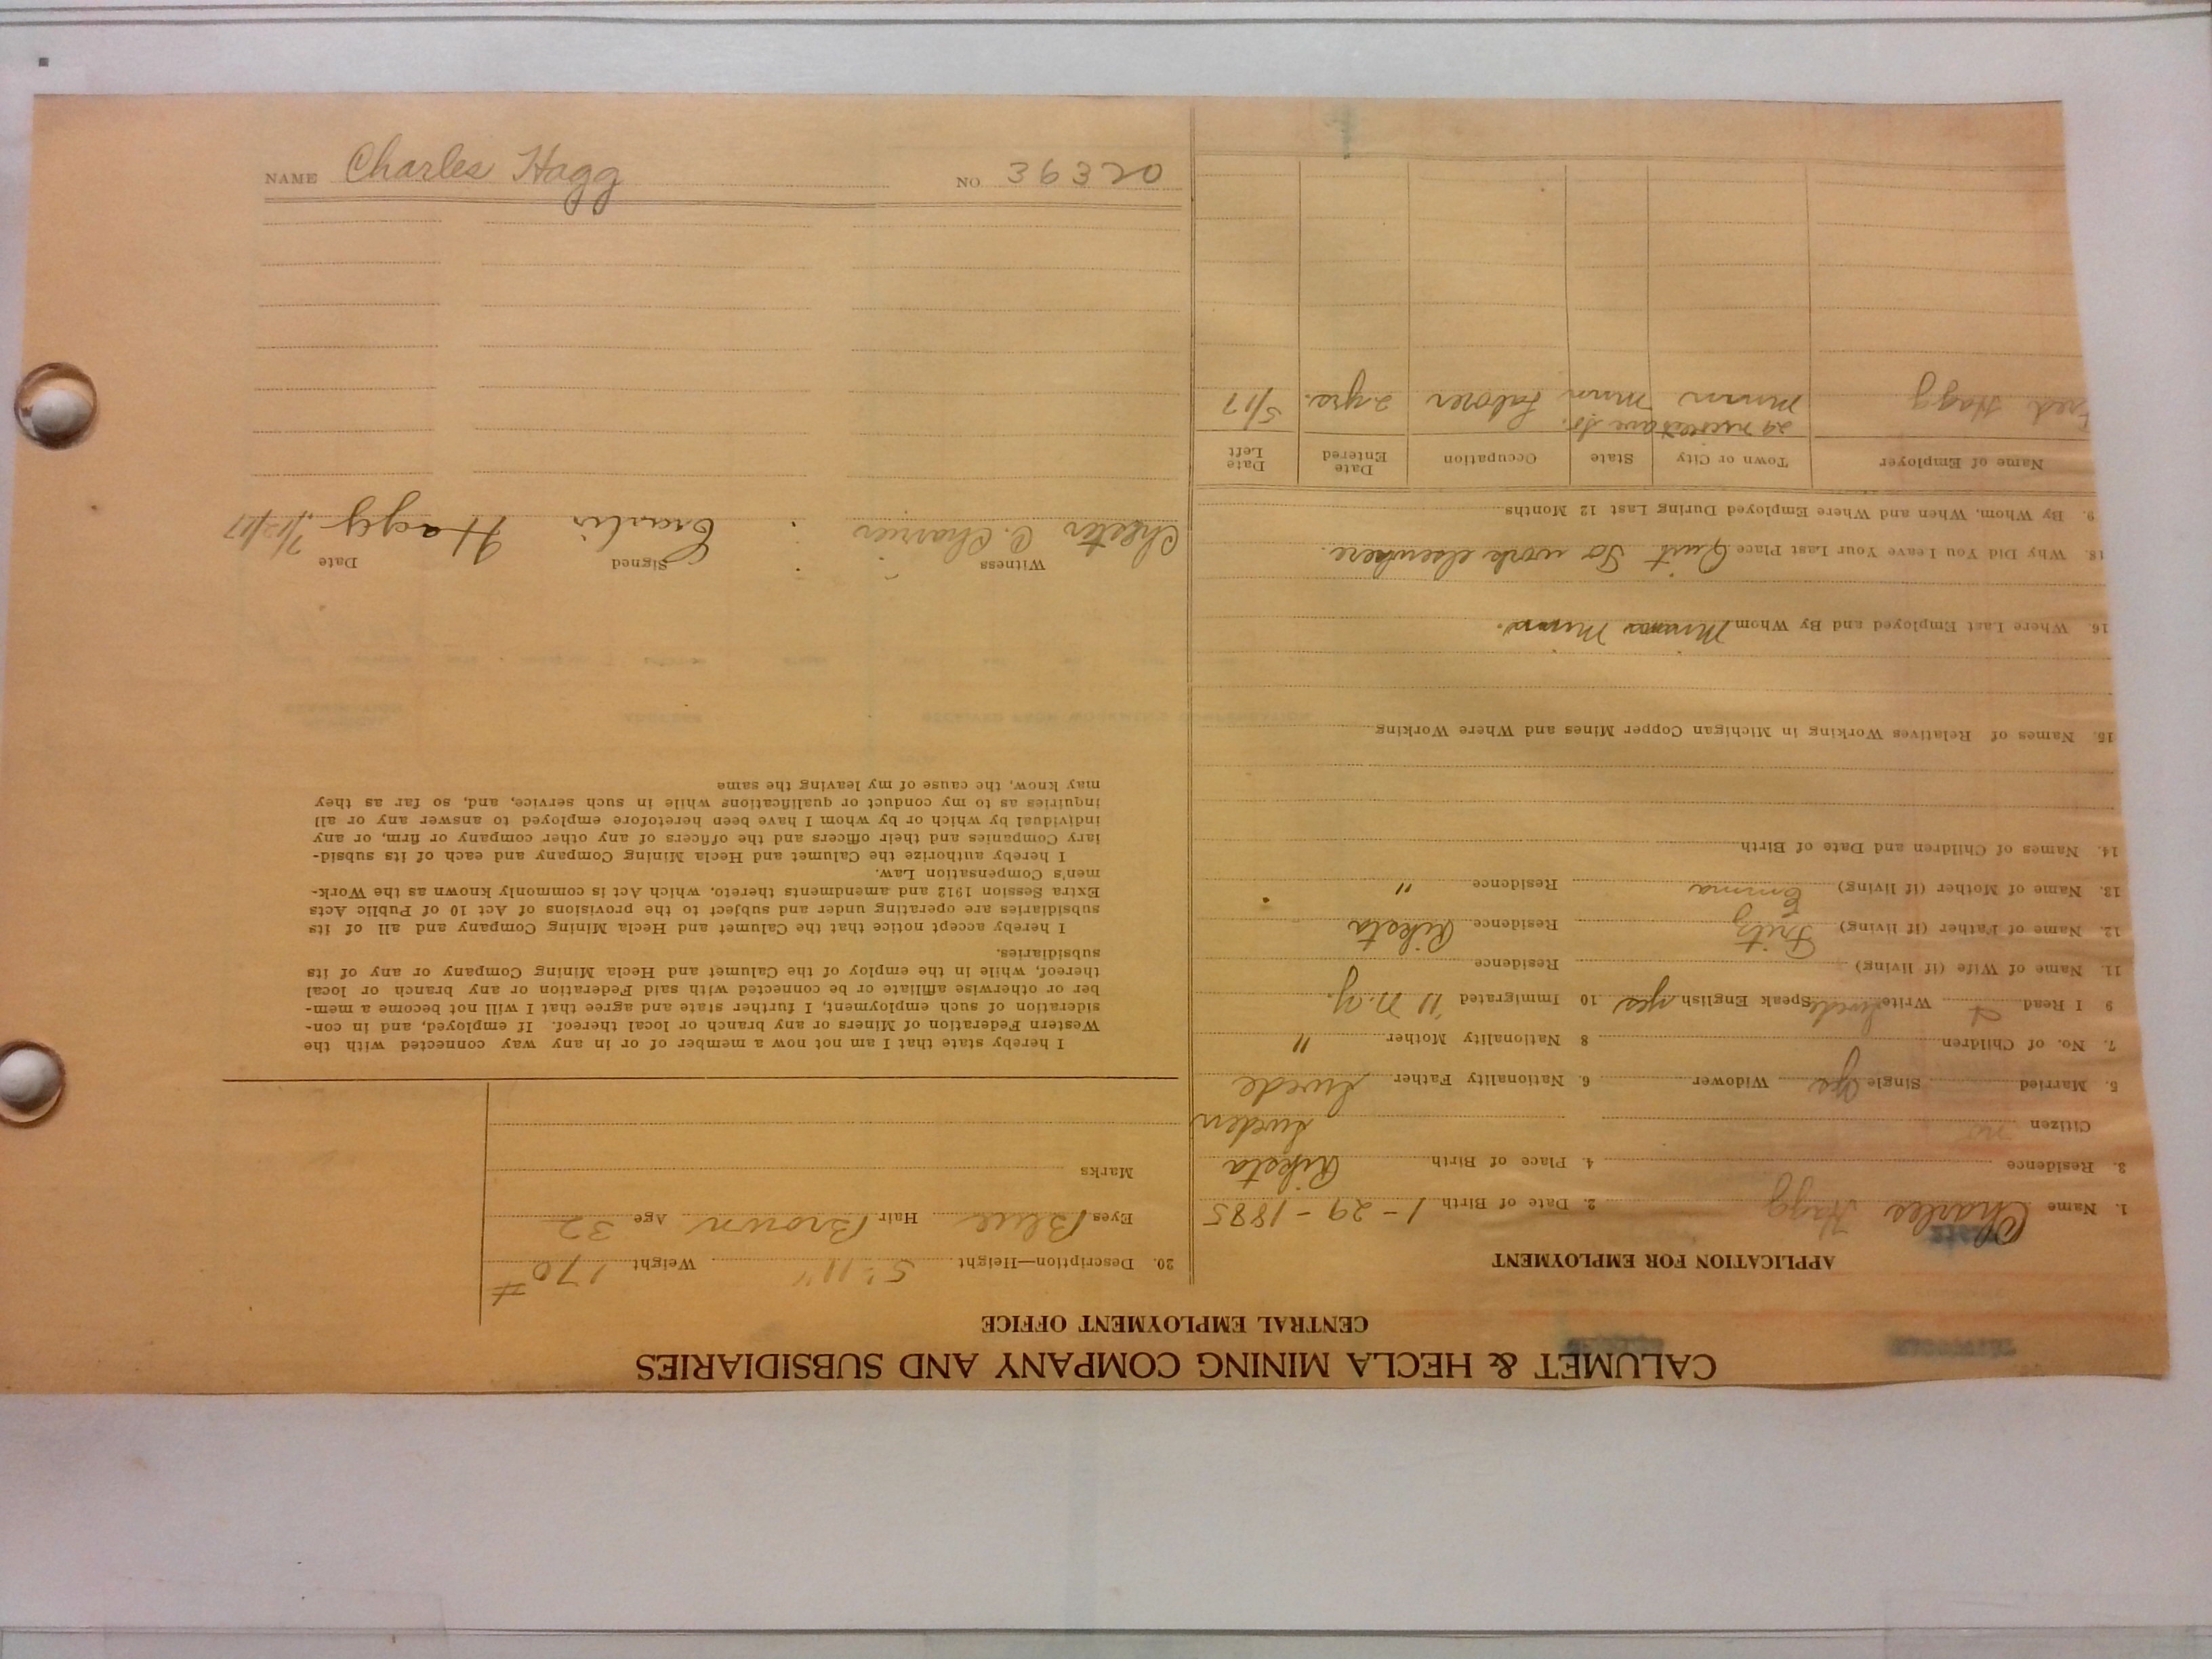 CALUMET & HECLA MINING COMPANY AND SUBSIDIARIES
CENTRAL EMPLOYMENT OFFICE
APPLICATION FOR EMPLOYMENT
1. Name Charles Hagg 2. Date of Birth 1-29-1885
3. Residence 4. Place of Birth Riksta
Citizen no Sweden
5. Married Single yes Widower 6. Nationality Father Swede
7. No. of Children 8 Nationality Mother "
9 I Read Write Swede Speak English yes 10 Immigrated '11 N.Y.
11. Name of Wife (if living) Residence
12. Name of Father (if living) Fritz Residence Riksta
13. Name of Mother (if living) Emma Residence "
14. Names of Children and Date of Birth
15. Names of Relatives Working in Michigan Copper Mines and Where Working
16. Where Last Employed and By Whom Minn.
18. Why Did You Leave Your Last Place Quit To work elsewhere.
9. By Whom, When and Where Employed During Last 12 Months
Name of Employer Town or City State Occupation Date Entered Date Left
29 ave So.
Fred Hagg Minn Minn Laborer 2 yrs. 5/17
20. Description—Height 5'11" Weight 170#
Eyes Blue Hair Brown Age 32
Marks
I hereby state that I am not now a member of or in any way connected with the
Western Federation of Miners or any branch or local thereof. If employed, and in con-
sideration of such employment, I further state and agree that I will not become a mem-
ber or otherwise affiliate or be connected with said Federation or any branch or local
thereof, while in the employ of the Calumet and Hecla Mining Company or any of its
subsidiaries.
I hereby accept notice that the Calumet and Hecla Mining Company and all of its
subsidiaries are operating under and subject to the provisions of Act 10 of Public Acts
Extra Session 1912 and amendments thereto, which Act is commonly known as the Work-
men's Compensation Law.
I hereby authorize the Calumet and Hecla Mining Company and each of its subsid-
iary Companies and their officers and the officers of any other company or firm, or any
individual by which or by whom I have been heretofore employed to answer any or all
inquiries as to my conduct or qualifications while in such service, and, so far as they
may know, the cause of my leaving the same
Witness Signed Date
Chester C. Charrier Hagg 7/12/17
NAME Charles Hagg NO 36320